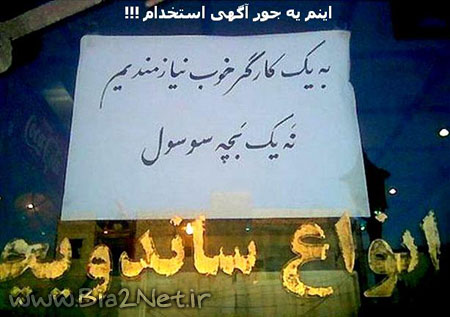 اینم یه جور آگهی استخدام !!!
به یک کارگر خوب نیازمندیم
نه یک بچه سوسول
انواع ساندویچ
www.Bia2Net.ir